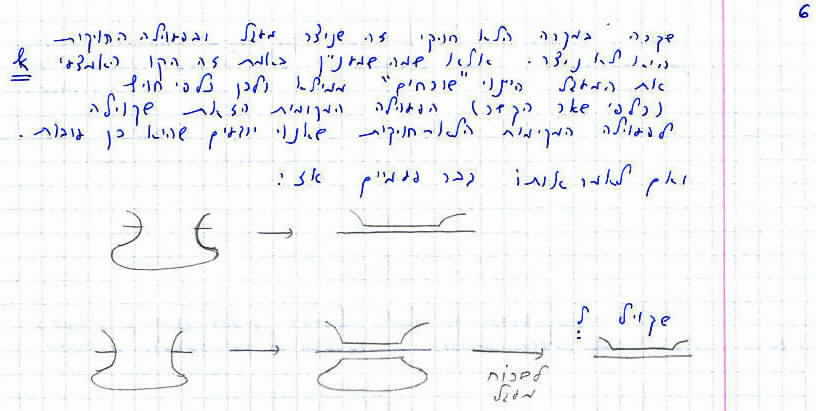 6
שקרה במקרה הלא חוקי זה שנוצר מעגל ובפעולה החוקית
היא לא נוצר. אלא שמה שמעניין באמת זה הקו האמצעי
k
את המעגל היינו "שוכחים" ממילא ולכן כלפי חוץ
(כלפי שאר הקשר) הפעולה המקומית הזאת שקולה
לפעולה המקומית הלא-חוקית שאנו יודעים שהיא כן עובדת.
ואם לאמר אותו דבר פעמיים אז:
שקול ל:
לשכוח
מעגל